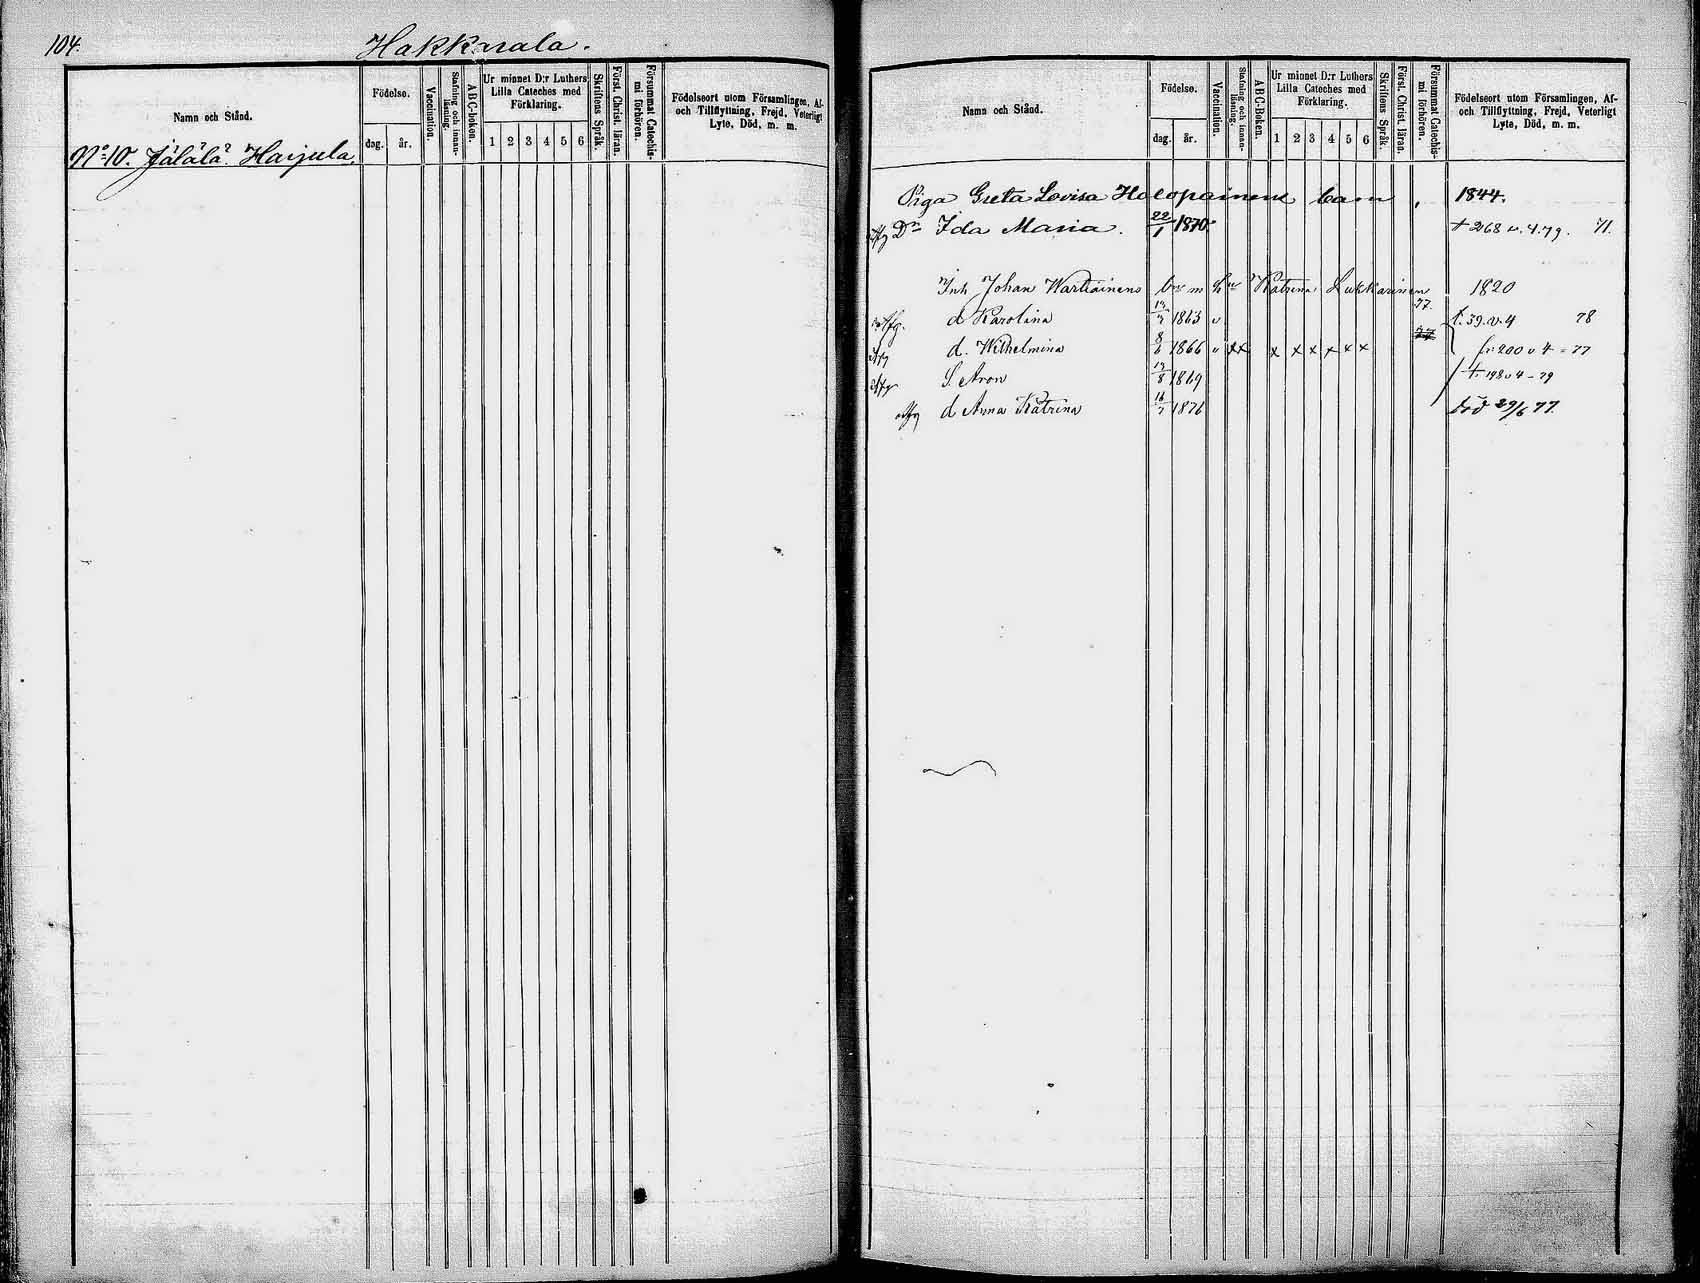 104.
Hakkarala.
Namn och Stånd.
Födelse.
dag. år.
Vaccination.
Stafning och innanläsning.
A B C-boken.
Ur minnet D:r Luthers Lilla Cateches med Förklaring.
1 2 3 4 5 6
Skriftens Språk.
Först. Christ. läran.
Försummat Catechismi förhören.
Födelseort utom Församlingen, Af- och Tillflyttning, Frejd, Veterligt Lyte, Död, m. m.
No 10. Jälälä. Harjula.
Namn och Stånd.
Födelse.
dag. år.
Vaccination.
Stafning och innanläsning.
A B C-Boken.
Ur minnet D:r Luthers Lilla Cateches med Förklaring.
1 2 3 4 5 6
Skriftens Språk.
Först. Christ. läran.
Försummat Catechismi förhören.
Födelseort utom Församlingen, Af- och Tillflyttning, Frejd, Veterligt Lyte, Död, m. m.
Piga Greta Lovisa Holopainens barn 1844.
Dr Ida Maria. 22/1 1870. 268 v. 4. 79. 71.
Inh Johan Wartiainens barn m hu Katrina Lukkarinen 1820
d Karolina 1863 v 77. f. 39. v. 4 78
d. Wilhelmina 8/6 1866 v x x x x x x x x fr 200 v 4 = 77
S. Aron 1869 198 v 4 - 79
d Anna Katrina 16/7 1876 död 29/6 77.